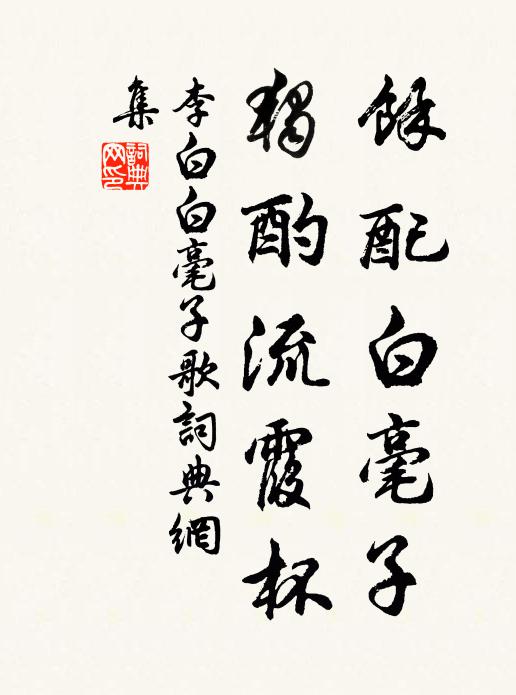 餘配白毫子
獨酌流霞杯
李白白毫子歌詞典網
集
詞典
网印